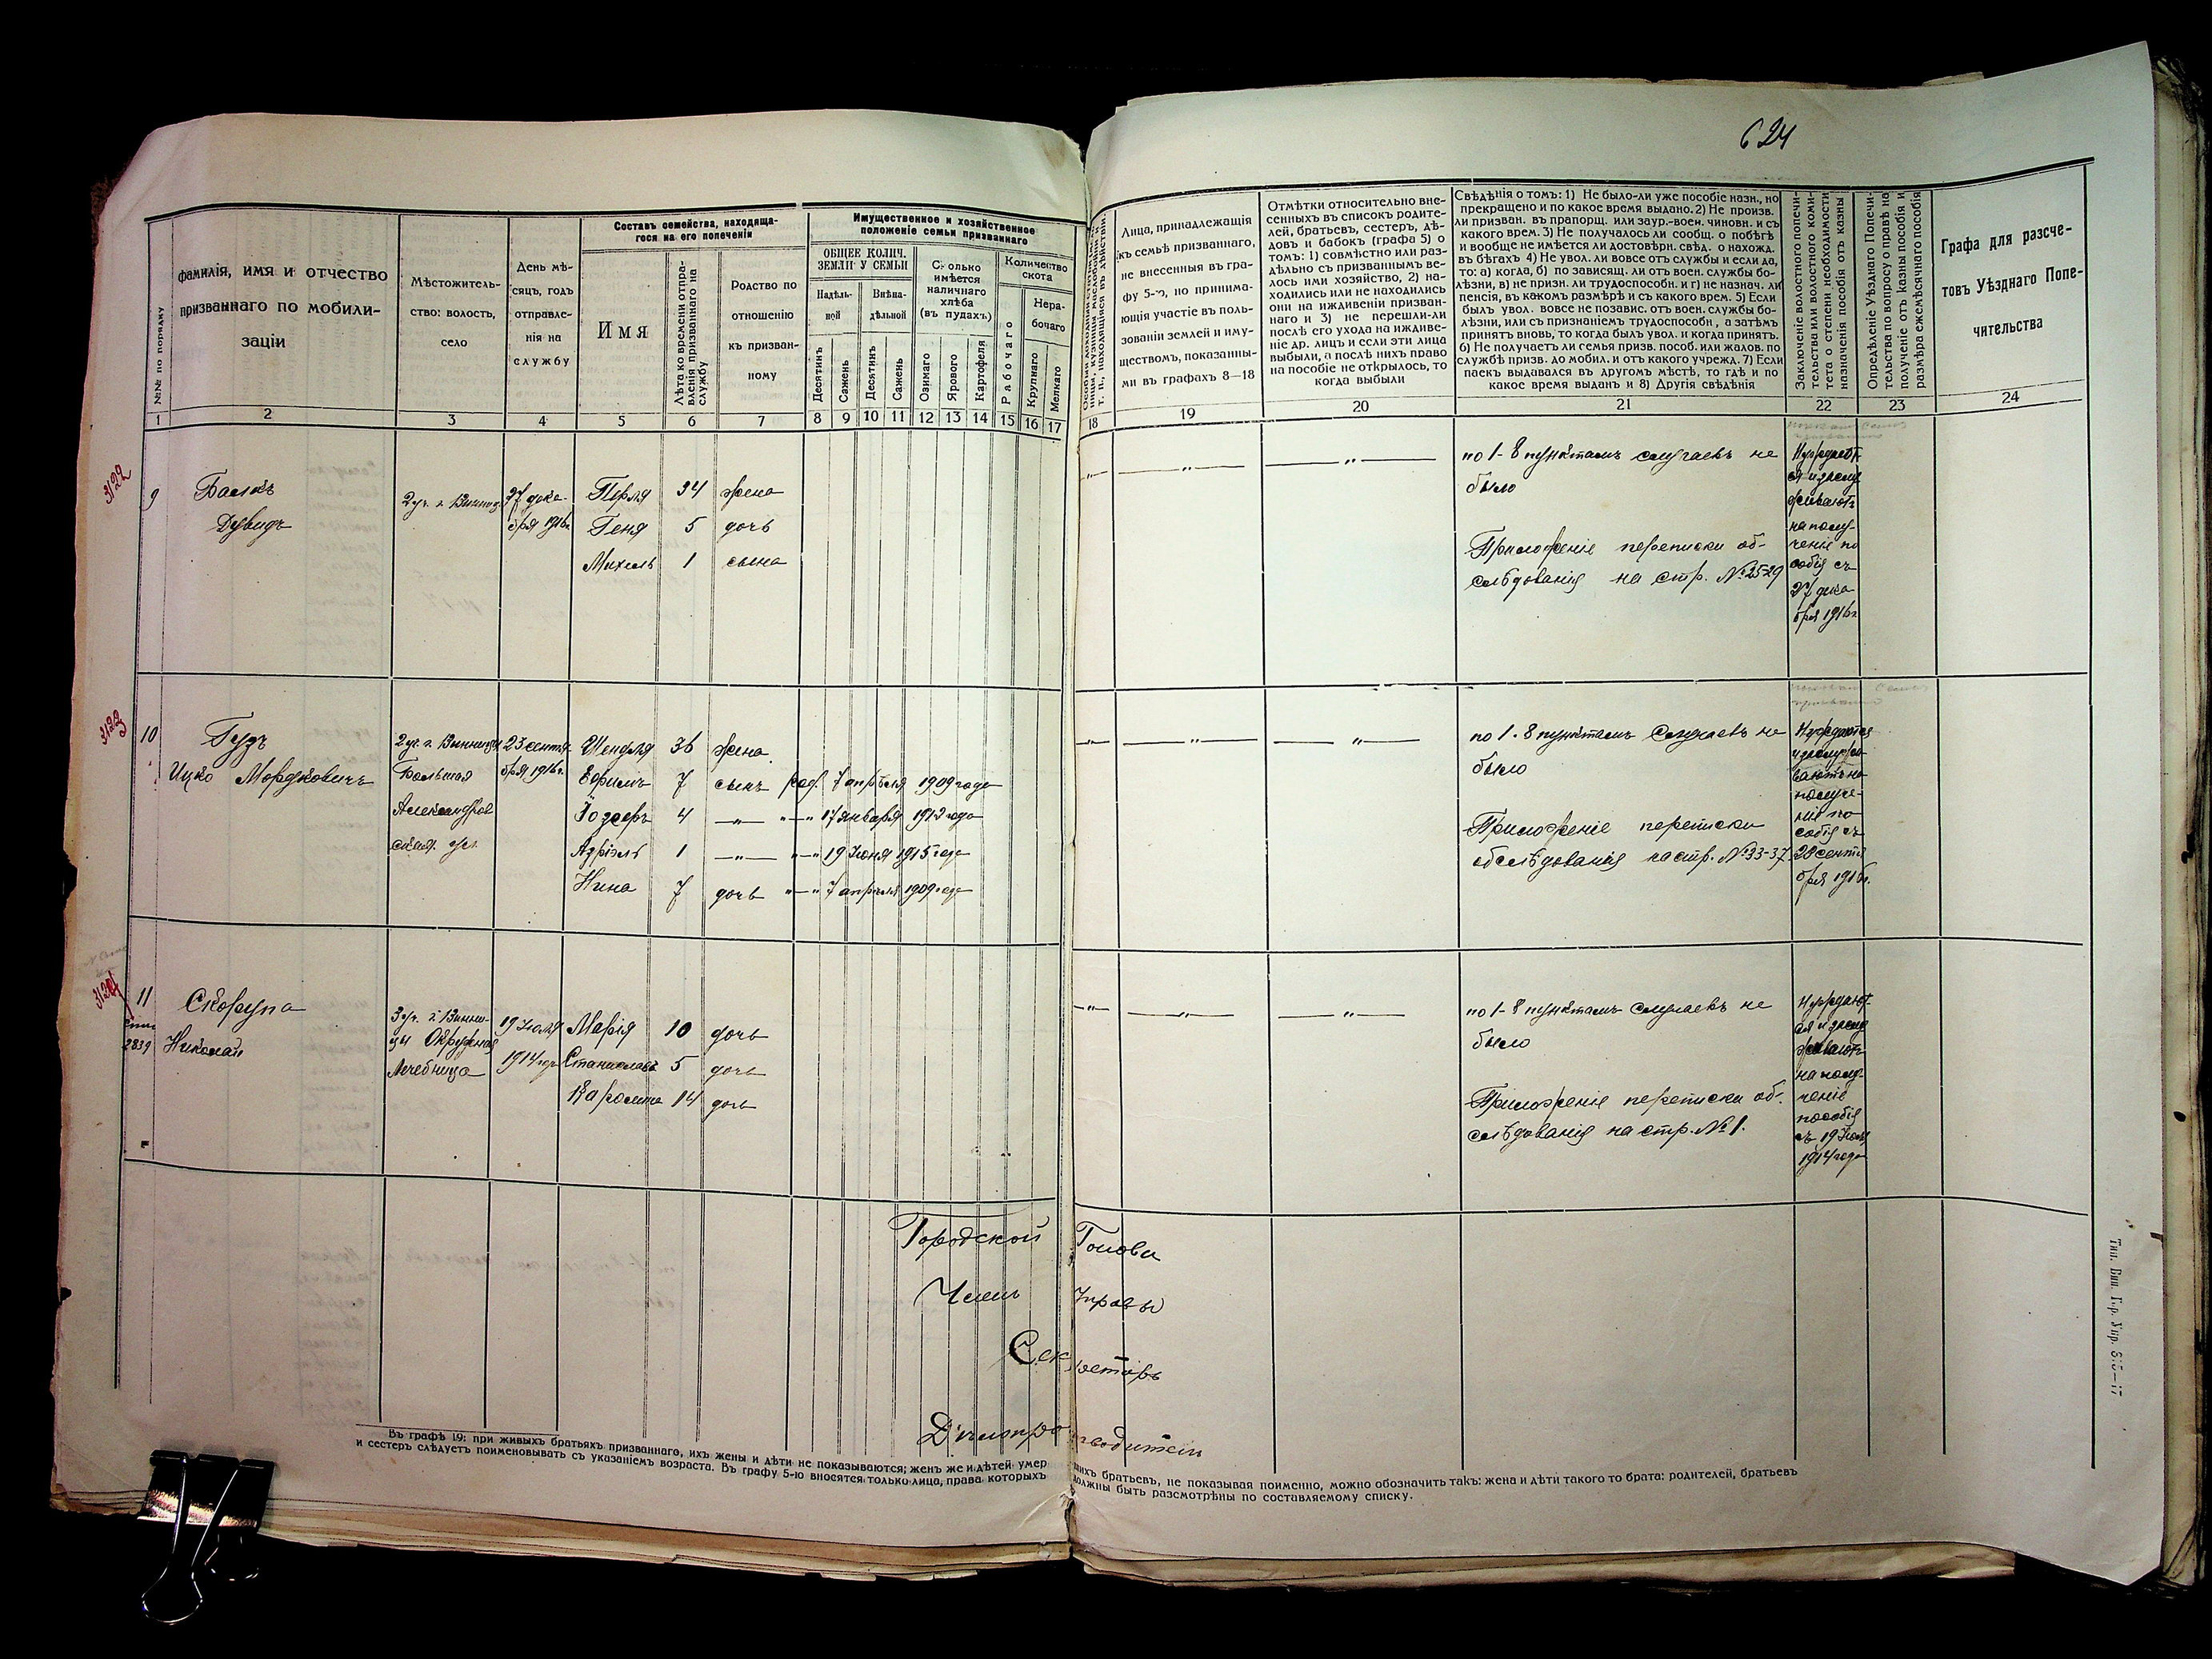 624
№№ по порядку
фамилія, имя и отчество
призваннаго по мобили-
заціи
Мѣстожитель-
ство: волость,
село
День мѣ-
сяцъ, годъ
отправле-
нія на
службу
Составъ семейства, находяща-
гося на его попеченіи
Имя
Лѣта ко времени отпра-
вленія призваннаго на
службу
Родство по
отношенію
къ призван-
ному
Имущественное и хозяйственное
положеніе семьи призваннаго
ОБЩЕЕ КОЛИЧ.
ЗЕМЛИ У СЕМЬИ
Надѣль-
ной
Внѣна-
дѣльной
Десятинъ
Сажень
Десятинъ
Сажень
Сколько
имѣется
наличнаго
хлѣба
(въ пудахъ)
Озимаго
Ярового
Картофеля
Количество
скота
Рабочаго
Нера-
бочаго
Крупнаго
Мелкаго
Лица, принадлежащія
къ семьѣ призваннаго,
не внесенныя въ гра-
фу 5-ю, но принима-
ющія участіе въ поль-
зованіи землей и иму-
ществомъ, показанны-
ми въ графахъ 8—18
Отмѣтки относительно вне-
сенныхъ въ списокъ родите-
лей, братьевъ, сестеръ, дѣ-
довъ и бабокъ (графа 5) о
томъ: 1) совмѣстно или раз-
дѣльно съ призваннымъ ве-
лось ими хозяйство, 2) на-
ходились или не находились
они на иждивеніи призван-
наго и 3) не перешли-ли
послѣ его ухода на иждиве-
ніе др. лицъ и если эти лица
выбыли, а послѣ нихъ право
на пособіе не открылось, то
когда выбыли
Свѣдѣнія о томъ: 1) Не было-ли уже пособіе назн., но
прекращено и по какое время выдано. 2) Не произв.
ли призван. въ прапорщ. или заур.-воен. чиновн. и съ
какого врем. 3) Не получалось ли сообщ. о побѣгѣ
и вообще не имѣется ли достовѣрн. свѣд. о нахожд.
въ бѣгахъ 4) Не увол. ли вовсе отъ службы и если да,
то: а) когда, б) по зависящ. ли отъ воен. службы бо-
лѣзни, в) не призн. ли трудоспособн. и г) не назнач. ли
пенсія, въ какомъ размѣрѣ и съ какого врем. 5) Если
былъ увол. вовсе не позавис. отъ воен. службы бо-
лѣзни, или съ признаніемъ трудоспособн., а затѣмъ
принятъ вновь, то когда былъ увол. и когда принятъ.
6) Не получаетъ ли семья призв. пособ. или жалов. по
службѣ призв. до мобил. и отъ какого учрежд. 7) Если
паекъ выдавался въ другомъ мѣстѣ, то гдѣ и по
какое время выданъ и 8) Другія свѣдѣнія
Заключеніе волостного попечи-
тельства или волостного коми-
тета о степени необходимости
назначенія пособія отъ казны
Опредѣленіе Уѣзднаго Попечи-
тельства по вопросу о правѣ на
полученіе отъ казны пособія и
размѣра ежемѣсячнаго пособія
Графа для разсче-
товъ Уѣзднаго Попе-
чительства
1 2 3 4 5 6 7 8 9 10 11 12 13 14 15 16 17 18 19 20 21 22 23 24
3122
9
Дувидъ
2 уч. г. Винниц.
27 дека-
бря 1916 г.
Перля 34 жена
Геня 5 дочь
Михель 1 сына
по 1-8 пунктамъ случаевъ не
было
Приложеніе переписки об-
слѣдованія на стр. № 25-29
Нуждает-
ся и заслу
живаютъ
на полу-
ченіе по
собія съ
27 дека
бря 1916 г
3123
10
Гузъ
Ицко Мордковичъ
2 уч. г. Винницы
Большая
Александров
ская ул.
23 сентя-
бря 1916 г.
Шендля 36 жена
Ефимъ 7 сынъ род. 7 апрѣля 1909 года
Іозефъ 4 —„— „—„ 17 января 1912 года
Адріэль 1 —„— „—„ 19 Іюня 1915 года
Нина 7 дочь „—„ 7 апрѣля 1909 года
по 1-8 пунктамъ случаевъ не
было
Приложеніе переписки
обслѣдованія на стр. № 33-37
Нуждаются
и заслужи
ваютъ на
получе-
ніе по
собія съ
23 сентя
бря 1916 г.
3124
11
2839
Скорупа
Николай
3 уч. г. Винни-
цы Окружная
Лечебница
19 Іюля
1914 год
Марія 10 дочь
Станислава 5 дочь
Каролина 14 дочь
по 1-8 пунктамъ случаевъ не
было
Приложеніе переписки об-
слѣдованія на стр. № 1.
Нуждают-
ся и заслу
живаютъ
на полу-
ченіе
пособія
съ 19 Іюля
1914 года
Городской Голова
Членъ Управы
Секретарь
Дѣлопроизводитель
Въ графѣ 19: при живыхъ братьяхъ призваннаго, ихъ жены и дѣти не показываются; женъ же и дѣтей умер
шихъ братьевъ, не показывая поименно, можно обозначить такъ: жена и дѣти такого то брата: родителей, братьевъ
и сестеръ слѣдуетъ поименовывать съ указаніемъ возраста. Въ графу 5-ю вносятся только лица, права которыхъ
должны быть разсмотрѣны по составляемому списку.